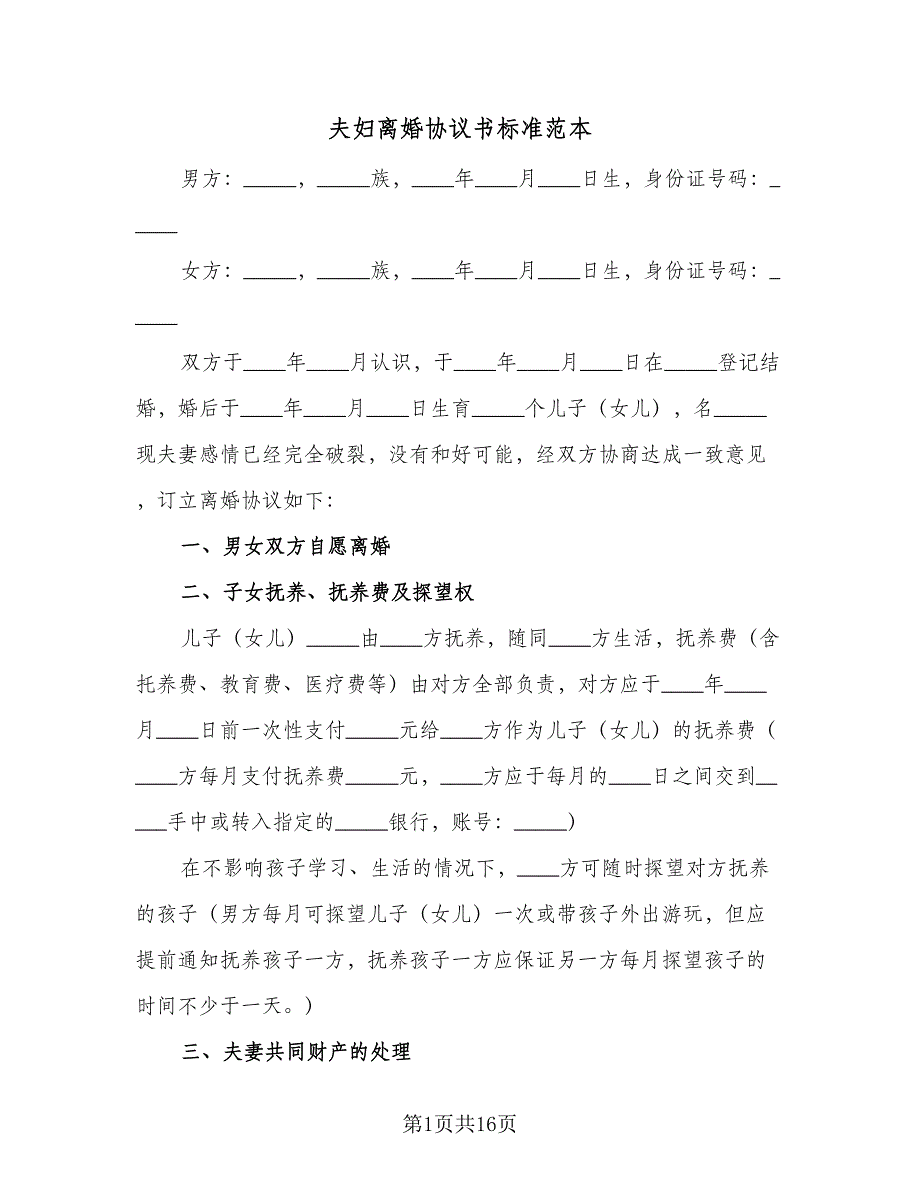 夫妇离婚协议书标准范本
男方：_____，_____族，____年____月____日生，身份证号码：_
____
女方：_____，_____族，____年____月____日生，身份证号码：_
____
双方于____年____月认识，于____年____月____日在_____登记结
婚，婚后于____年____月____日生育_____个儿子（女儿），名_____
现夫妻感情已经完全破裂，没有和好可能，经双方协商达成一致意见
，订立离婚协议如下：
一、男女双方自愿离婚
二、子女抚养、抚养费及探望权
儿子（女儿）_____由____方抚养，随同____方生活，抚养费（含
托养费、教育费、医疗费等）由对方全部负责，对方应于____年____
月____日前一次性支付_____元给____方作为儿子（女儿）的抚养费（
____方每月支付抚养费_____元，____方应于每月的____日之间交到__
___手中或转入指定的_____银行，账号：_____）
在不影响孩子学习、生活的情况下，____方可随时探望对方抚养
的孩子（男方每月可探望儿子（女儿）一次或带孩子外出游玩，但应
提前通知抚养孩子一方，抚养孩子一方应保证另一方每月探望孩子的
时间不少于一天。）
三、夫妻共同财产的处理
第1页共16页